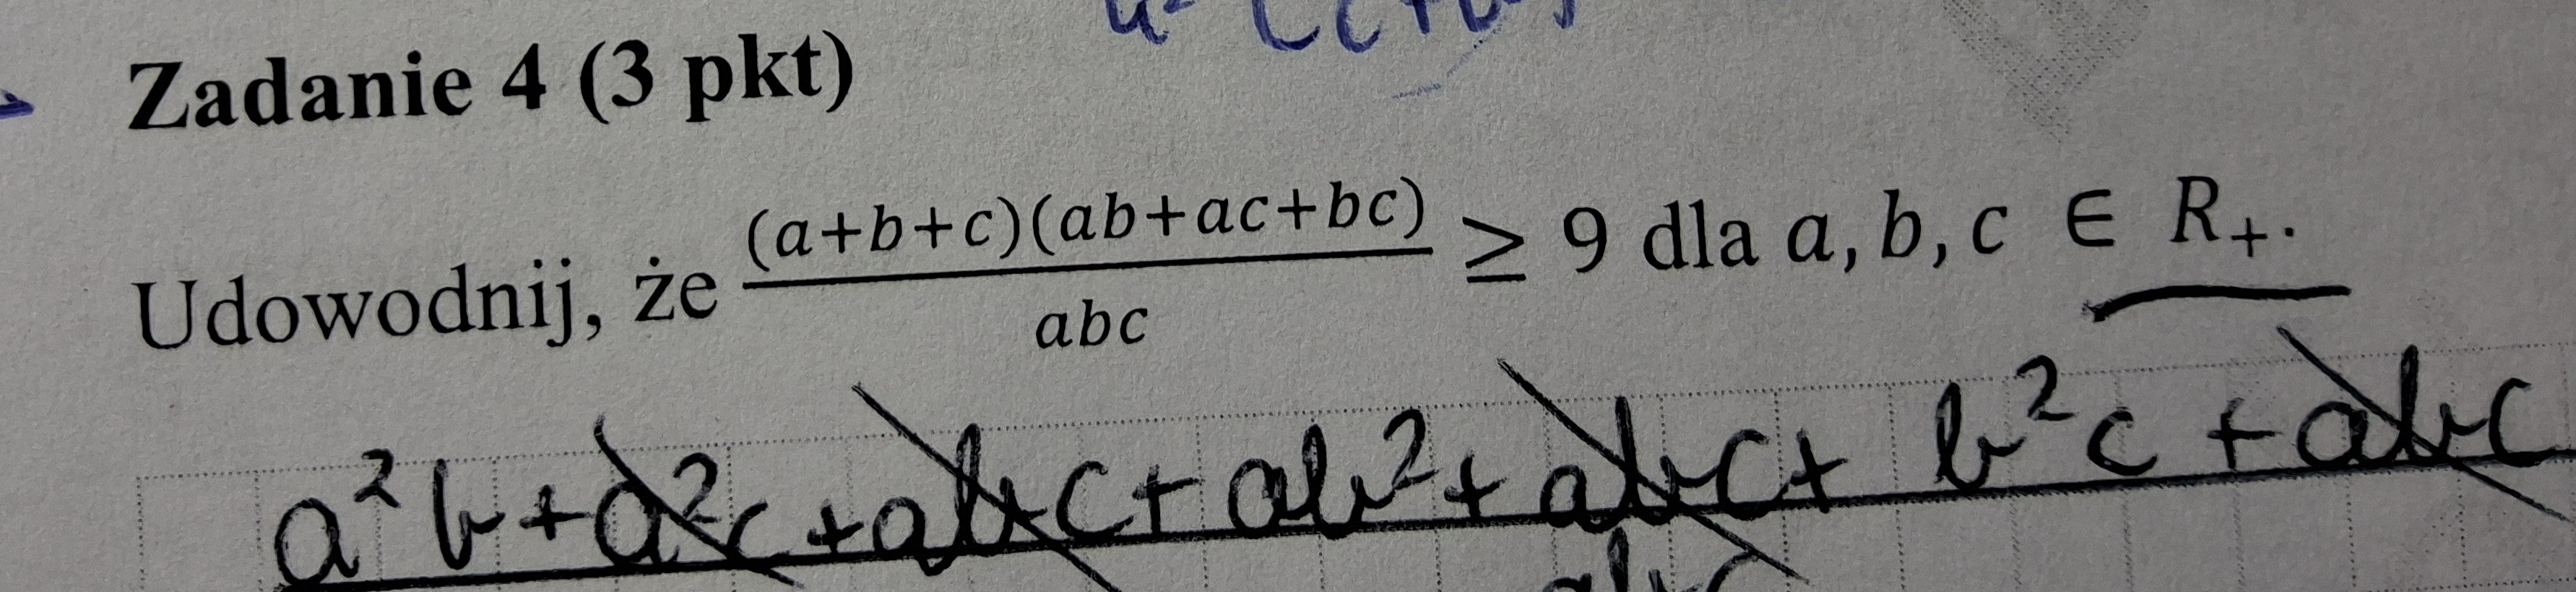 Zadanie 4 (3 pkt)
Udowodnij, że (a+b+c)(ab+ac+bc)/abc ≥ 9 dla a, b, c ∈ R₊.
a²b+a²c+abc+ab²+abc+b²c+abc